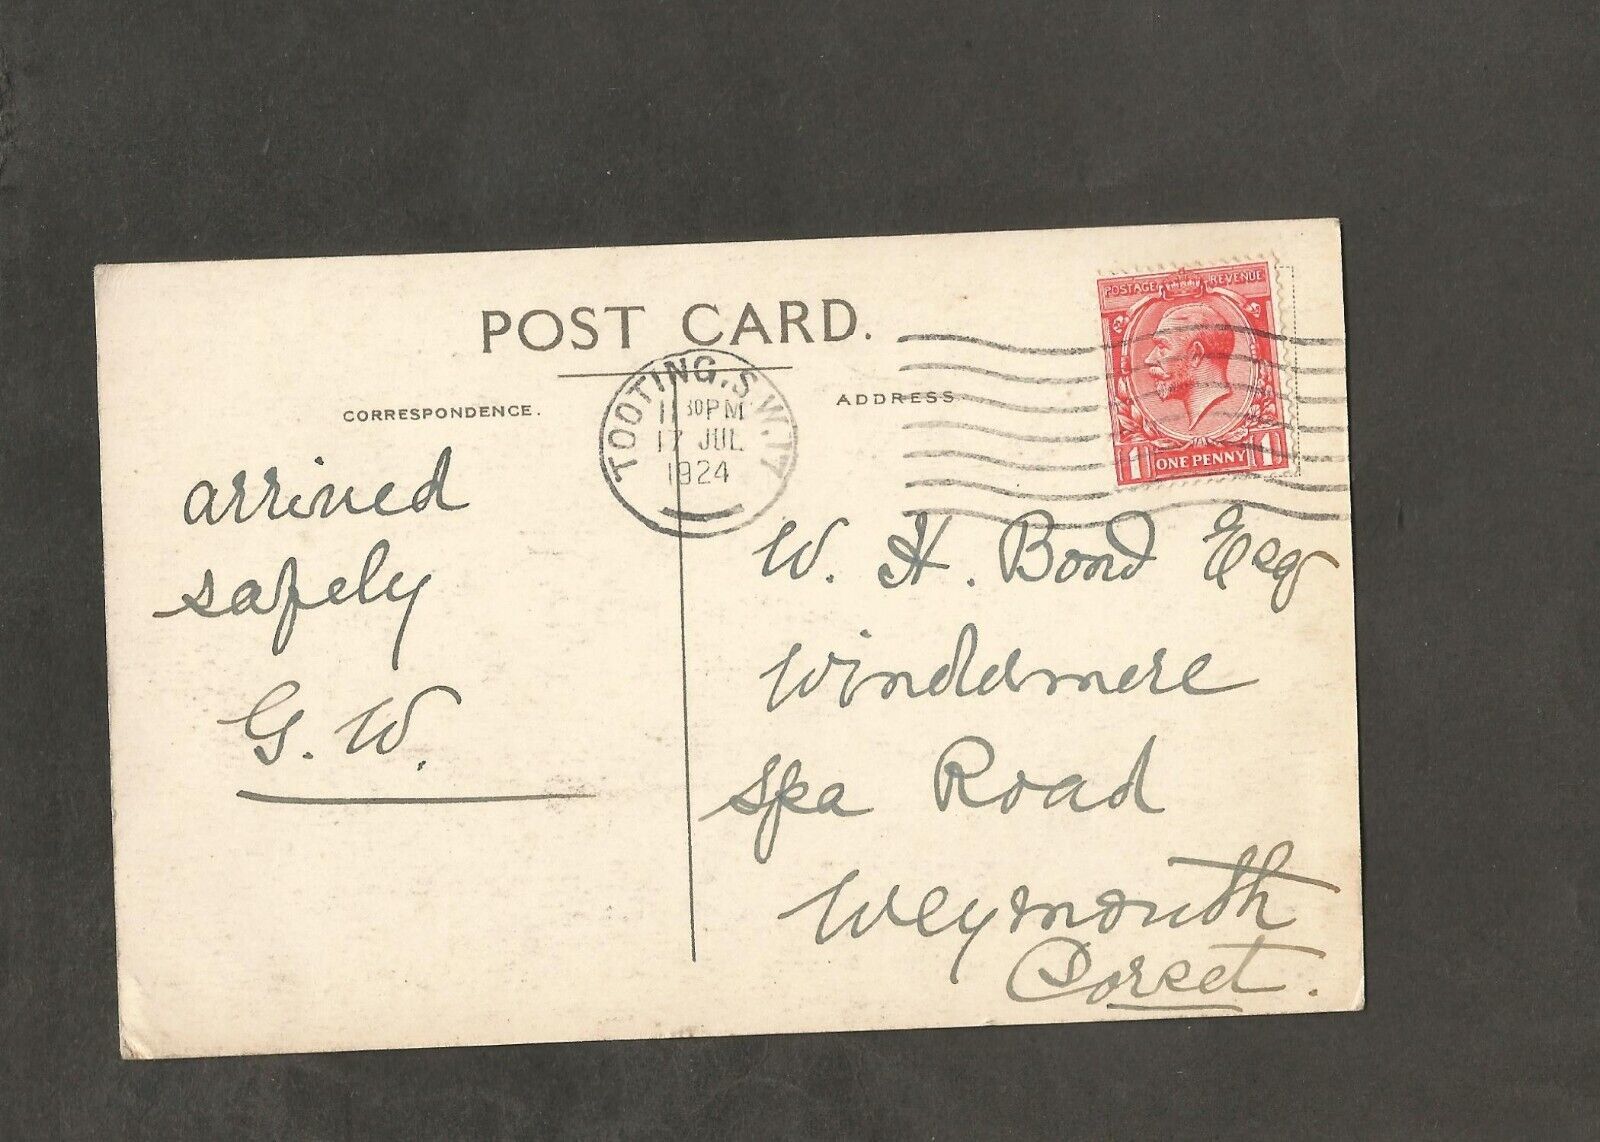 POST CARD.
CORRESPONDENCE.
ADDRESS
TOOTING. S.W.17
11 30PM
17 JUL
1924
POSTAGE REVENUE
1 ONE PENNY 1
arrived
safely
G. W.
W. H. Bond Esq
Windermere
Spa Road
Weymouth
Dorset.